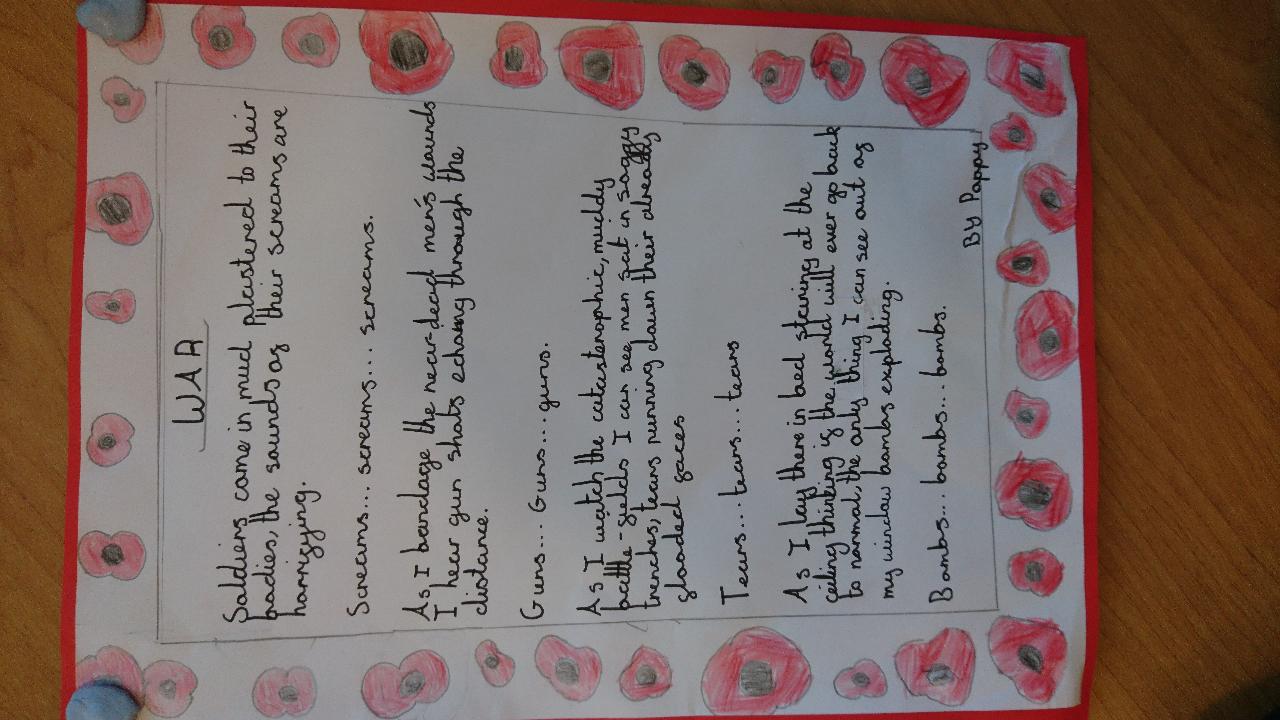 WAR
Soldiers come in mud plastered to their
bodies, the sounds of their screams are
horrifying.
Screams... screams... screams.
As I bandage the near-dead men's wounds
I hear gun shots echoing through the
distance.
Guns... Guns... guns.
As I watch the catastrophic, muddy
battle-fields I can see men sat in soggy
trenches, tears running down their already
flooded faces
Tears... tears... tears
As I lay there in bed staring at the
ceiling thinking if the world will ever go back
to normal, the only thing I can see out of
my window bombs exploding.
Bombs... bombs... bombs.
By Poppy